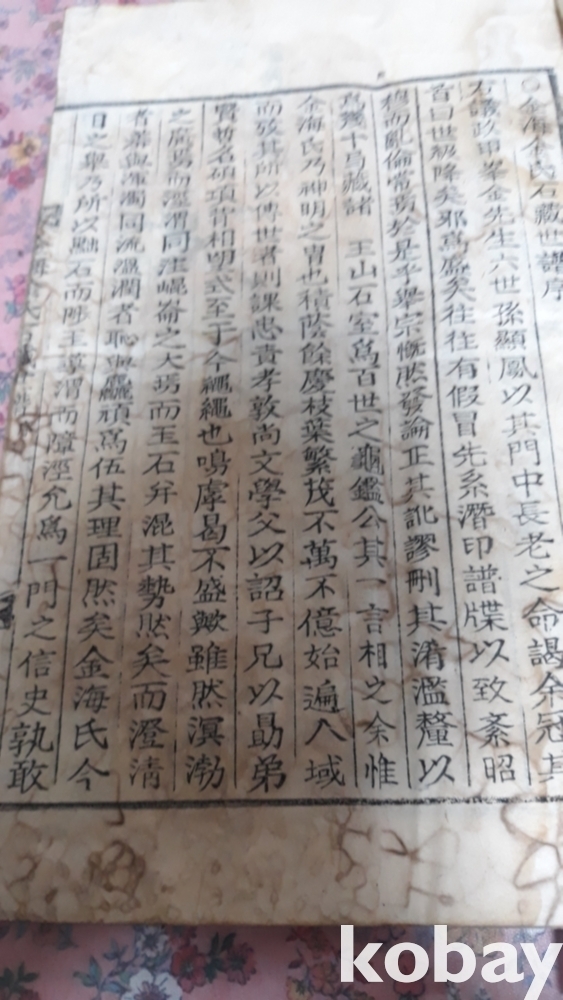 ○金海金氏石藏世譜序
右議政甲峯金先生六世孫顯鳳以其門中長老之命謁余冠其
首曰世級降矣邪爲盛矣往往有假冒先系潛印譜牒以致紊昭
穆而亂倫常茲於是乎擧宗慨然發論正其訛謬刪其淆濫釐以
爲幾十局藏諸 王山石室爲百世之龜鑑公其一言相之余惟
金海氏乃神明之冑也積蔭餘慶枝葉繁茂不萬不億始遍八域
而攷其所以傳世者則課忠責孝敦尚文學父以詔子兄以勗弟
賢哲名碩項背相望式至于今繩繩也嗚虖曷不盛歟雖然溟渤
之廣焉而涇渭同注崐崙之大焉而玉石弁混其勢然矣而澄清
者羞與渾濁同流溫潤者恥與麤頑爲伍其理固然矣金海氏今
日之擧乃所以黜石而彫玉導渭而障涇允爲一門之信史孰敢
kobay